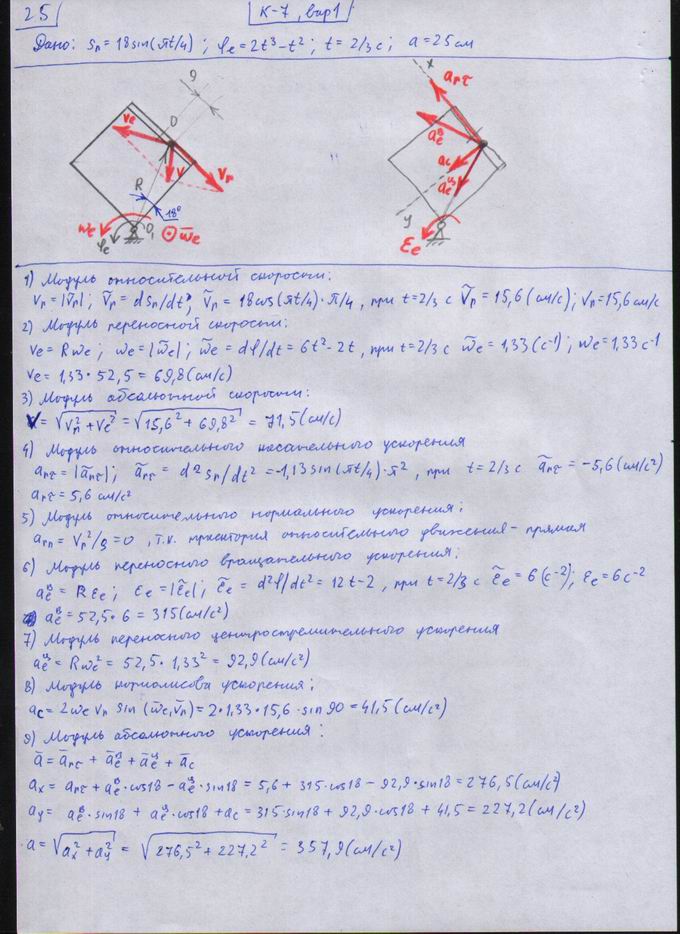 25
К-7, вар1
Дано: Sr = 18sin(πt/4); φe = 2t³-t²; t = 2/3 c; a = 25 см
9
ve
D
v
vr
R
18°
ωe
φe
O1
ω̄e
x
arτ
aeᵇ
ac
aeᶸ
y
εe
1) Модуль относительной скорости:
Vr = |ṽr|; ṽr = dSr/dt; ṽr = 18cos(πt/4)·π/4, при t=2/3 c ṽr = 15,6(см/с); Vr=15,6 см/с
2) Модуль переносной скорости:
ve = Rωe; ωe = |ω̃e|; ω̃e = dφ/dt = 6t²-2t, при t=2/3 c ω̃e = 1,33(с⁻¹); ωe=1,33 с⁻¹
ve = 1,33·52,5 = 69,8(см/с)
3) Модуль абсолютной скорости:
V = √(vr² + ve²) = √(15,6² + 69,8²) = 71,5(см/с)
4) Модуль относительного касательного ускорения
arτ = |ãrτ|; ãrτ = d²Sr/dt² = -1,13sin(πt/4)·π², при t=2/3 c ãrτ = -5,6(см/с²)
arτ = 5,6 см/с²
5) Модуль относительного нормального ускорения:
arn = Vr²/ρ = 0, т.к. траектория относительного движения - прямая
6) Модуль переносного вращательного ускорения:
aeᵇ = Rεe; εe = |ε̃e|; ε̃e = d²φ/dt² = 12t-2, при t=2/3 c ε̃e = 6(с⁻²); εe = 6с⁻²
aeᵇ = 52,5·6 = 315(см/с²)
7) Модуль переносного центростремительного ускорения
aeᶸ = Rωe² = 52,5·1,33² = 92,9(см/с²)
8) Модуль кориолисова ускорения:
ac = 2ωe vr sin(ω̄e,v̄r) = 2·1,33·15,6·sin90 = 41,5(см/с²)
9) Модуль абсолютного ускорения:
ā = ārτ + āeᵇ + āeᶸ + āc
ax = arτ + aeᵇ·cos18 - aeᶸ·sin18 = 5,6 + 315·cos18 - 92,9·sin18 = 276,5(см/с²)
ay = aeᵇ·sin18 + aeᶸ·cos18 + ac = 315·sin18 + 92,9·cos18 + 41,5 = 227,2(см/с²)
a = √(ax² + ay²) = √(276,5² + 227,2²) = 357,9(см/с²)